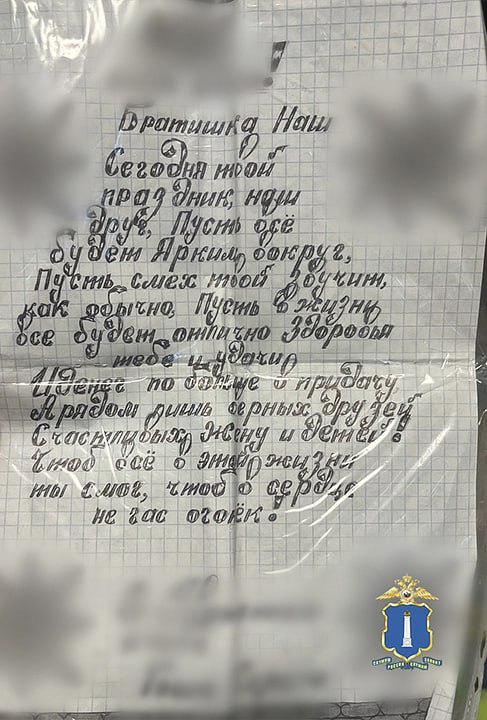 !
Братишка Наш
Сегодня твой
праздник, наш
друг, Пусть всё
будет Ярким, вокруг,
Пусть смех твой звучит,
как обычно, Пусть в жизни
все будет отлично Здоровья
тебе и удачи,
И денег по больше в придачу
А рядом лишь верных друзей
Счастливых, Жену и детей!
Чтоб всё в этой жизни
ты смог, чтоб в сердце
не гас огоёк!
СЛУЖИМ РОССИИ СЛУЖИМ ЗАКОНУ